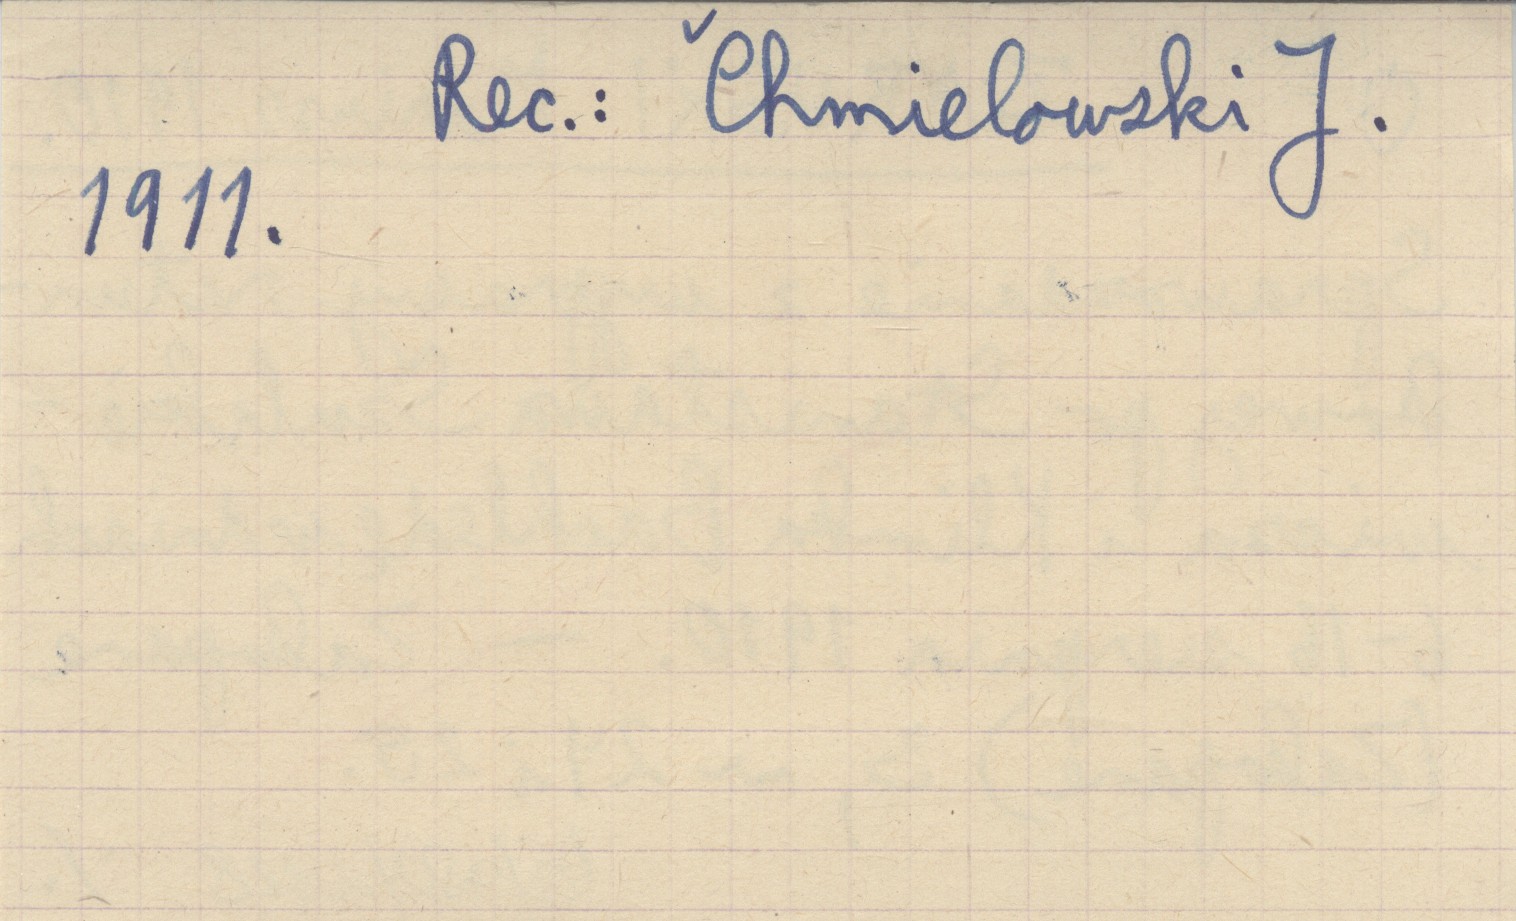 Rec.: Chmielowski J.
1911.